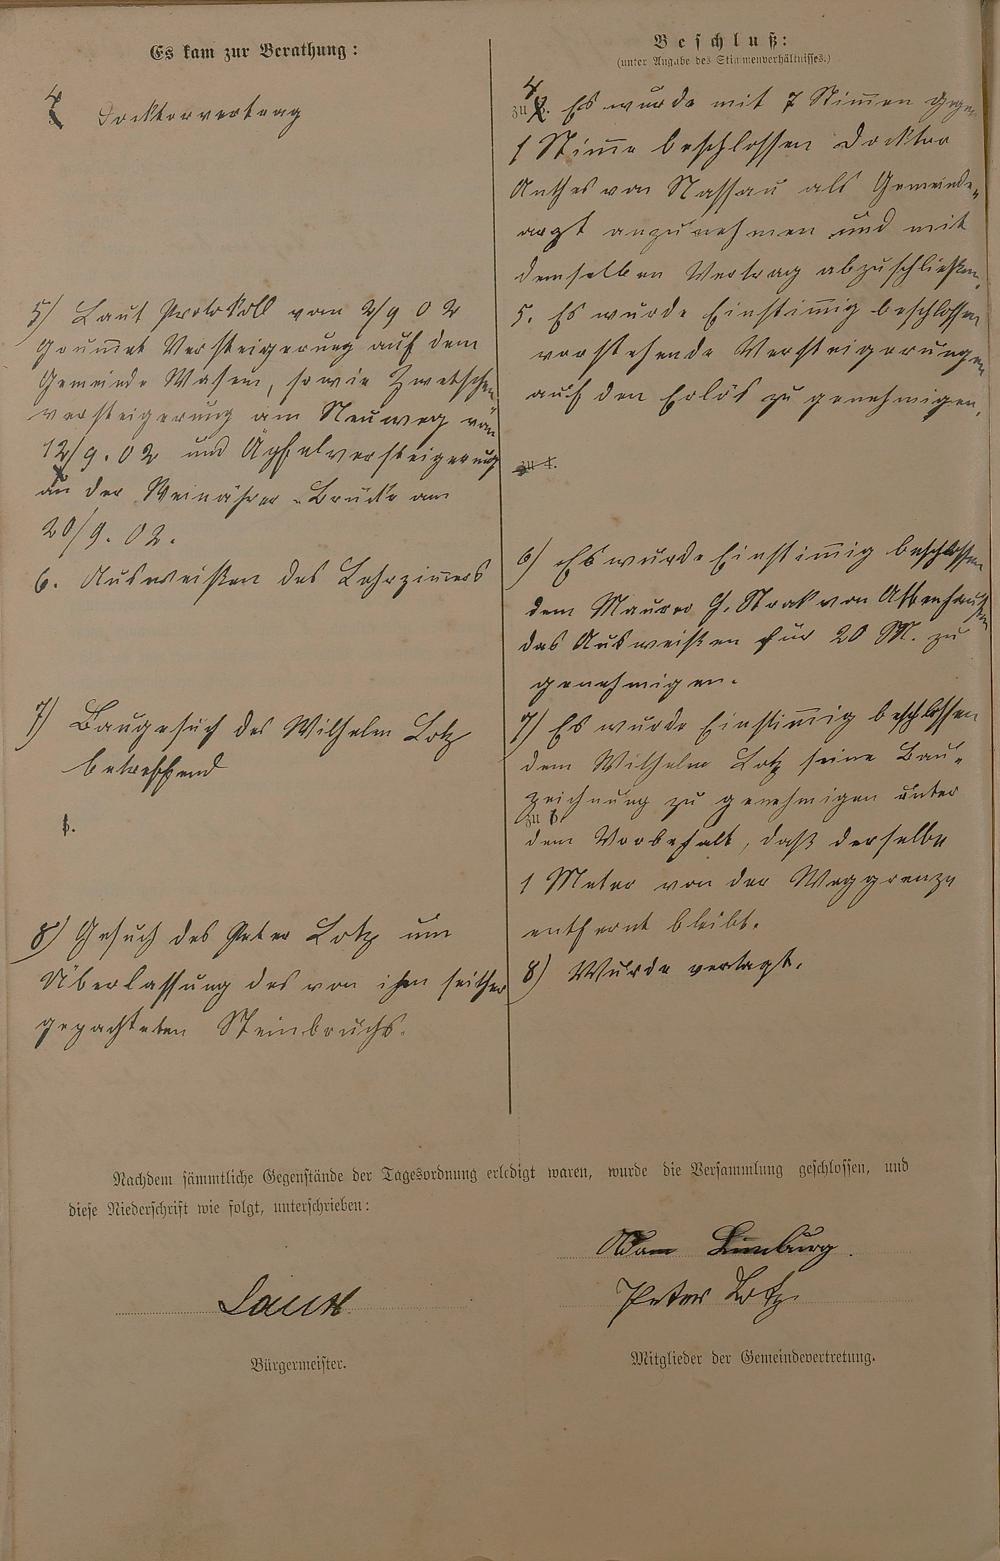 Es kam zur Berathung:
4 Docktorvertrag
5) Laut Protokoll vom 2/9 02
Grummet Versteigerung auf dem
Gemeinde Wasem, sowie Zwetschen
versteigerung am Neuweg vom
12/9. 02 und Äpfelversteigerung
an der Weinährer-Brücke am
20/9. 02.
6. Ausweißen des Lehrzim̄ers
7) Baugesuch des Wilhelm Lotz
betreffend
8) Gesuch des Peter Lotz um
Überlassung des von ihm seither
gepachteten Steinbruchs.
Beschluß:
(unter Angabe des Stimmenverhältnisses.)
zu 4. Es wurde mit 7 Stim̄en gegen
1 Stim̄e beschlossen Docktor
Anthes von Nassau als Gemeinde-
arzt anzunehmen und mit
demselben Vertrag abzuschließen.
5. Es wurde Einstim̄ig beschlossen
vorstehende Versteigerungen
auf den Erlös zu genehmigen.
zu 4.
6) Es wurde Einstim̄ig beschlossen
dem Maurer G. Strak von
das Ausweißen für 20 M. zu
genehmigen.
7) Es wurde Einstim̄ig beschlossen
dem Wilhelm Lotz seine Bau-
zeichnung zu genehmigen unter
zu
dem Vorbehalt, daß derselbe
1 Meter von der Weggrenze
entfernt bleibt.
8) Wurde vertagt.
Nachdem sämmtliche Gegenstände der Tagesordnung erledigt waren, wurde die Versammlung geschlossen, und
diese Niederschrift wie folgt, unterschrieben:
Adam Limburg.
Peter Lotz
Bürgermeister.
Mitglieder der Gemeindevertretung.